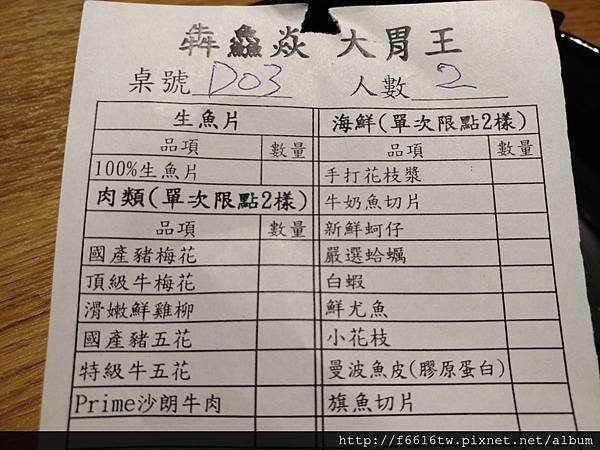 犇鱻焱 大胃王
桌號 D03 人數 2
生魚片 海鮮(單次限點2樣)
品項 數量 品項 數量
100%生魚片 手打花枝漿
肉類(單次限點2樣) 牛奶魚切片
品項 數量 新鮮蚵仔
國產豬梅花 嚴選蛤蠣
頂級牛梅花 白蝦
滑嫩鮮雞柳 鮮尤魚
國產豬五花 小花枝
特級牛五花 曼波魚皮(膠原蛋白)
Prime沙朗牛肉 旗魚切片
http://f6616tw.pixnet.net/album